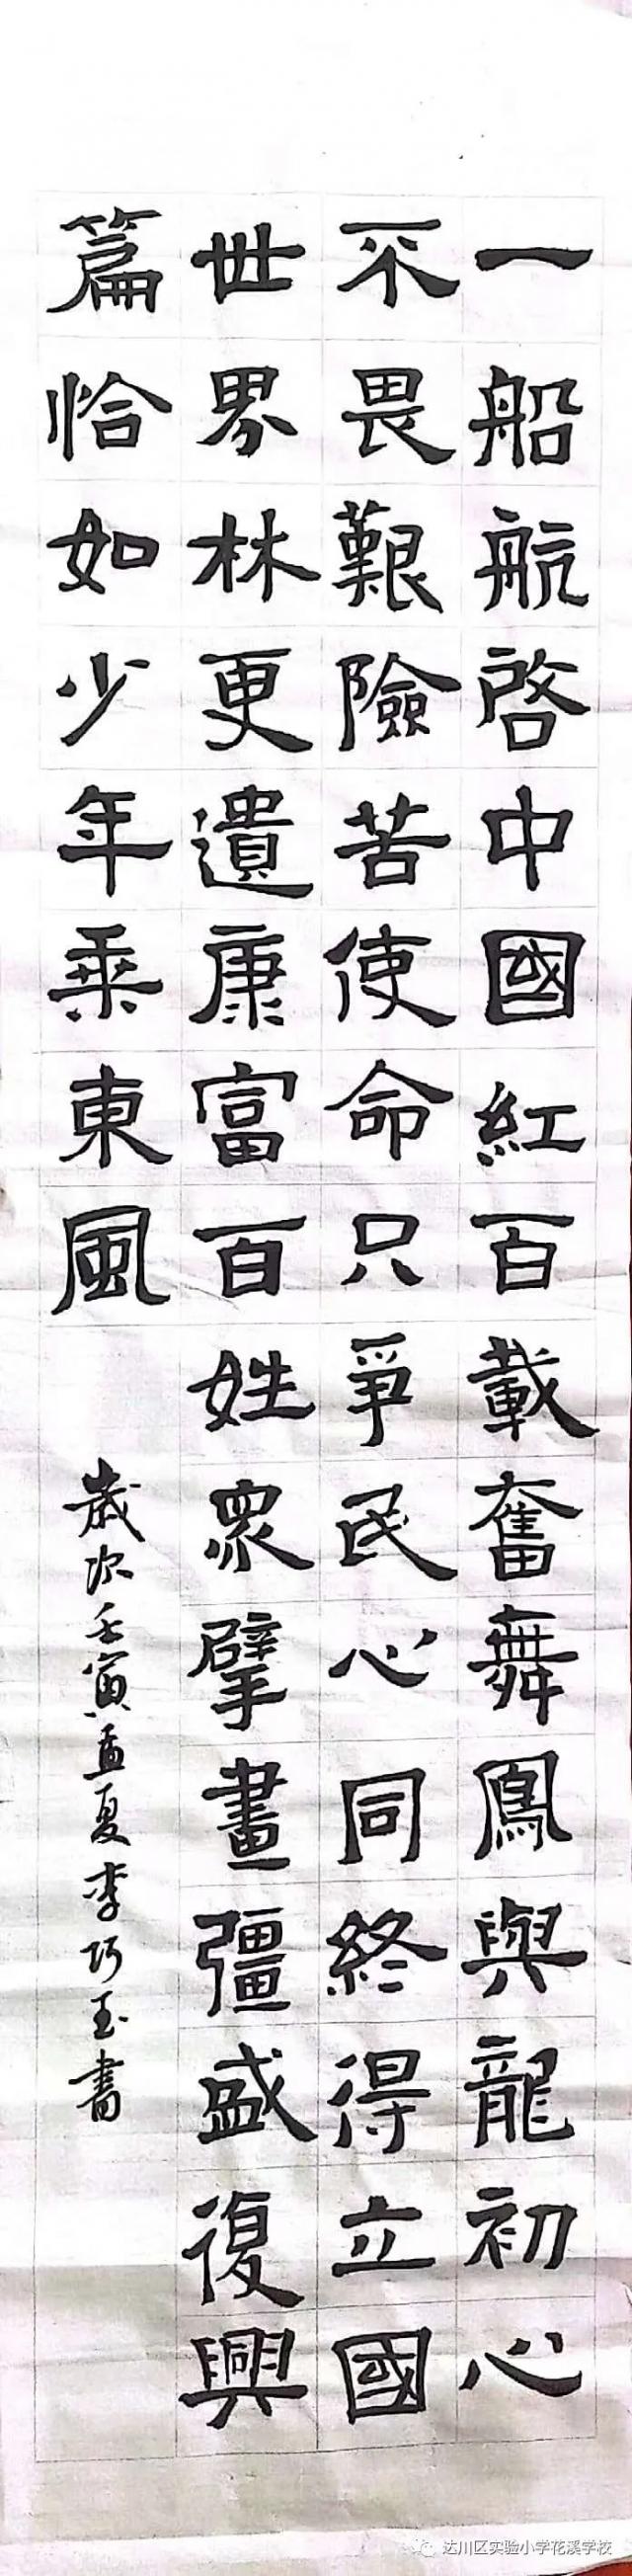 一船航啓中國紅百載奮舞鳳與龍初心
不畏艱險苦使命只爭民心同終得立國
世界林更遺康富百姓衆擘畫彊盛復興
篇恰如少年乘東風
歲次壬寅孟夏李巧玉書
达川区实验小学花溪学校